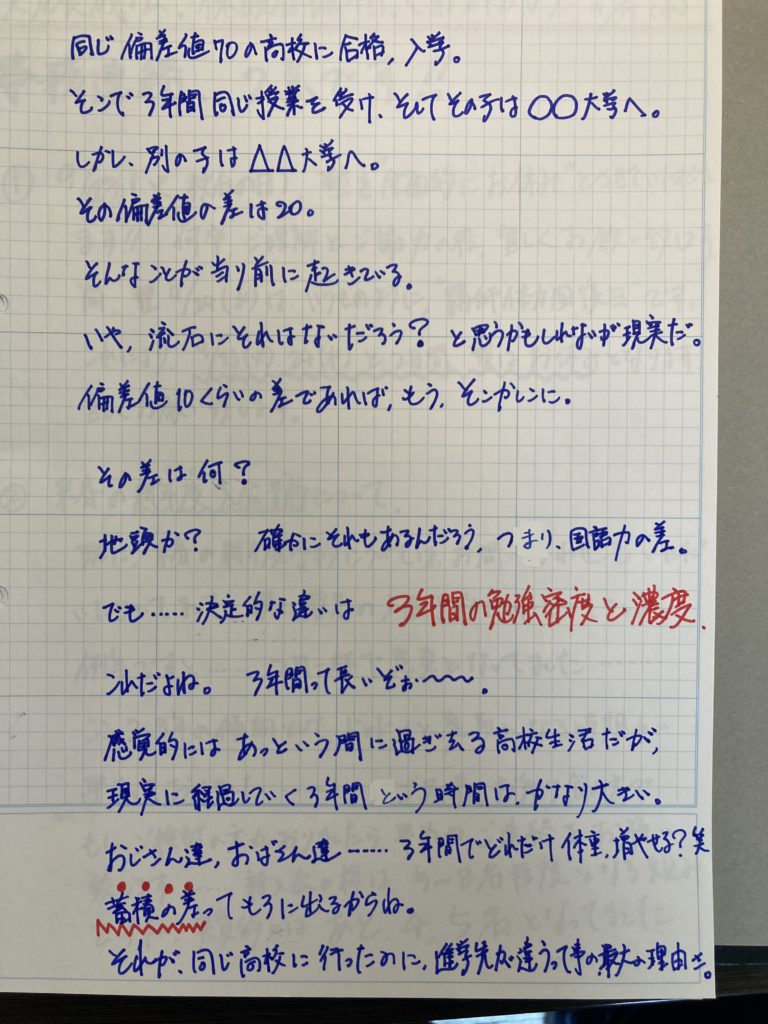 同じ偏差値70の高校に合格，入学。
そこで3年間同じ授業を受け、そしてその子は〇〇大学へ。
しかし、別の子は△△大学へ。
その偏差値の差は20。
そんなことが当り前に起きている。
いや，流石にそれはないだろう？ と思うかもしれないが現実だ。
偏差値10くらいの差であれば，もう，そこかしこに。
その差は何？
地頭か？ 確かにそれもあるんだろう，つまり、国語力の差。
でも……決定的な違いは 3年間の勉強密度と濃度．
これだよね。 3年間って長いぞぉ〜〜。
感覚的にはあっという間に過ぎ去る高校生活だが，
現実に経過していく3年間という時間は、かなり大きい。
おじさん達，おばさん達……3年間でどれだけ体重，増やせる？笑
蓄積の差ってもろに出るからね。
それが、同じ高校に行ったのに，進学先が違うって事の最大の理由さ。